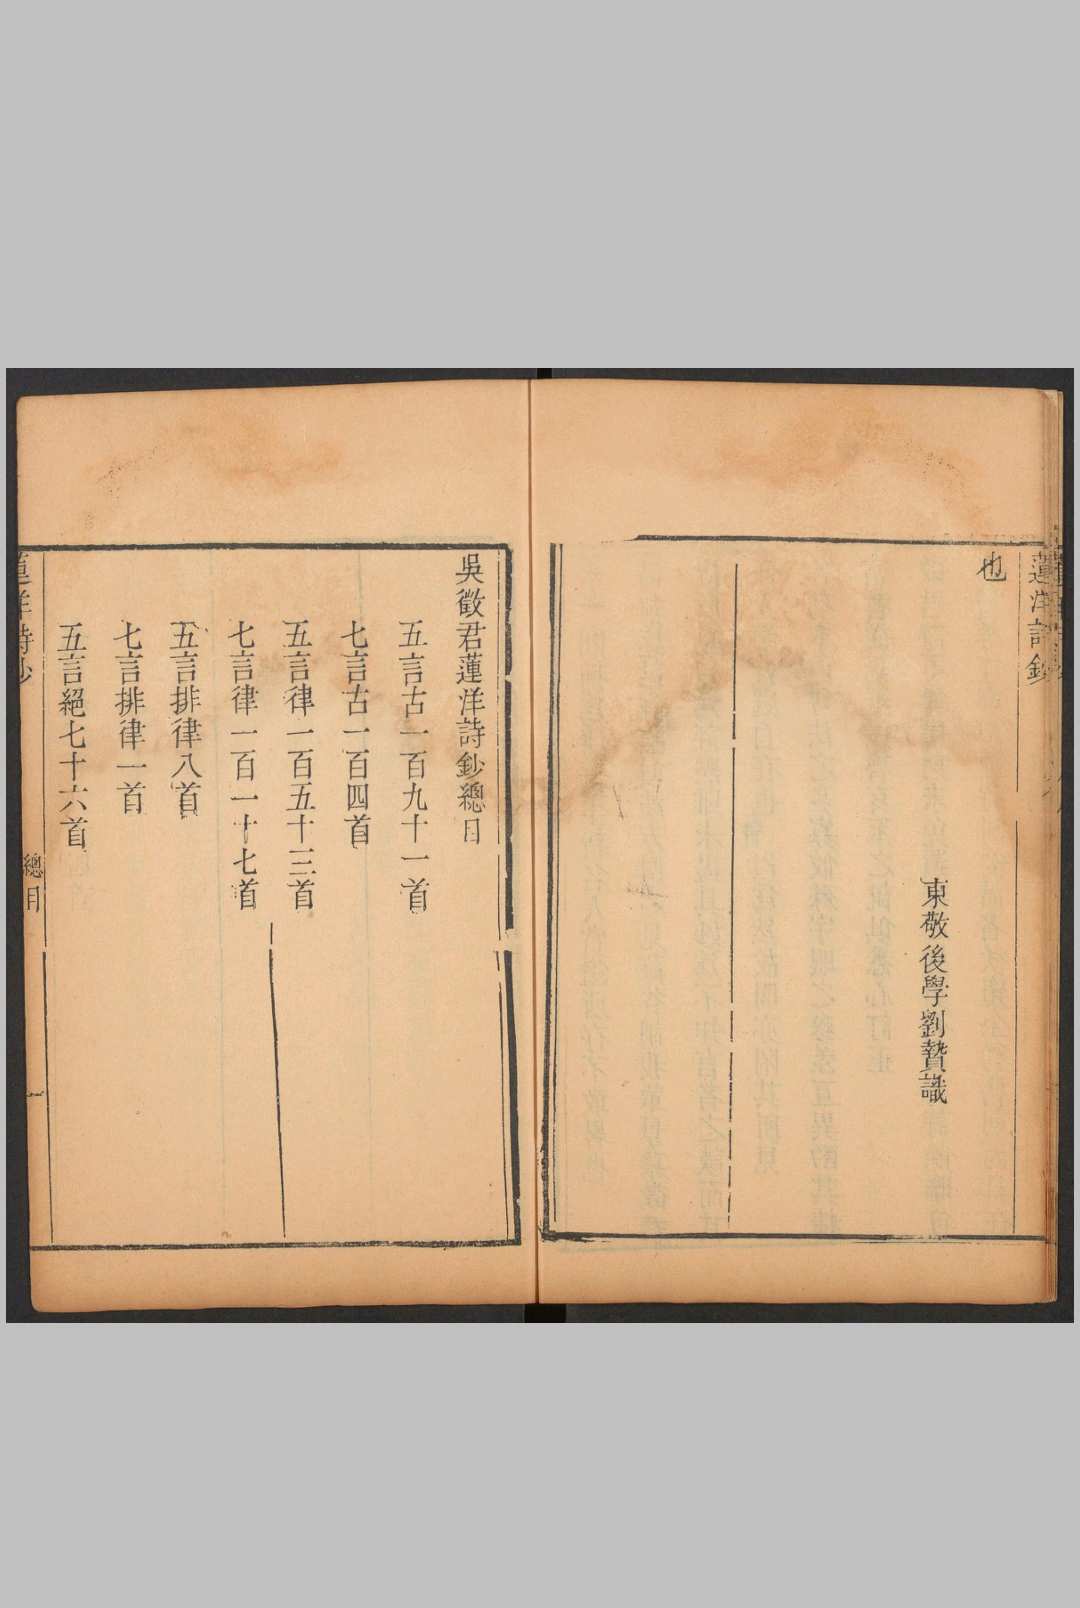 蓮洋詩鈔
也
東敬後學劉贄識
吳徵君蓮洋詩鈔總目
五言古一百九十一首
七言古一百四首
五言律一百五十三首
七言律一百一十七首
五言排律八首
七言排律一首
五言絕七十六首
蓮洋詩鈔
總目
一